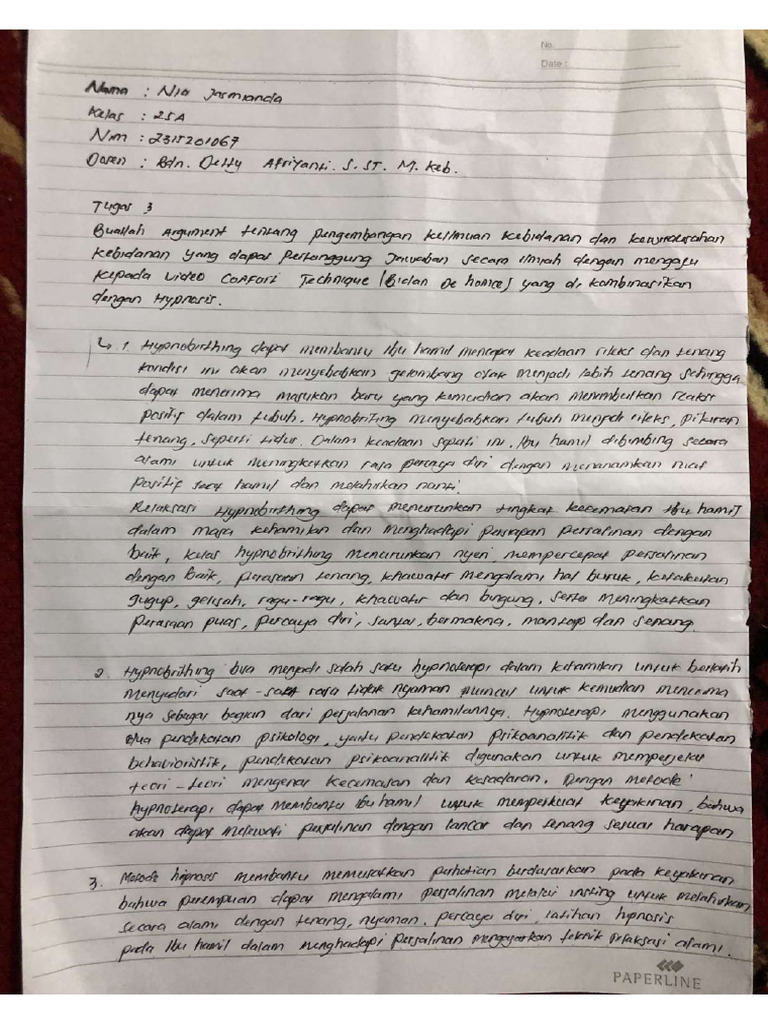 No.
Date :
Nama : Nia Jasmianda
Kelas : 25A
Nim : 2315201067
Dosen : Bdn. Detty Afriyanti. S.ST. M. Keb.
Tugas 3
Buatlah Argument tentang pengembangan keilmuan kebidanan dan kewirausahan
kebidanan yang dapat pertanggung Jawaban secara ilmiah dengan mengacu
kepada video Comfort Technique (Bidan De homce) yang di kombinasikan
dengan Hypnosis.
↳ 1. Hypnobirthing dapat membantu Ibu hamil mencapai keadaan rileks dan tenang
kondisi ini akan menyebabkan gelombang otak menjadi labih tenang sehingga
dapat menerima masukan baru yang kemudian akan menimbulkan reaksi
positif dalam tubuh. Hypnobriting menyebabkan tubuh menjadi rileks, pikiran
tenang, seperti tidur. Dalam keadaan seperti ini, Ibu hamil dibimbing secara
alami untuk meningkatkan rasa percaya diri dengan menanamkan niat
positif saat hamil dan melahirkan nanti.
Relaksasi Hypnobirthing dapat menurunkan tingkat kecemasan Ibu hamil
dalam masa kehamilan dan menghadapi persiapan persalinan dengan
baik, kelas hypnobrithing menurunkan nyeri, mempercepat persalinan
dengan baik, perasaan tenang, khawatir mengalami hal buruk, ketakutan
gugup, gelisah, ragu-ragu, khawatir dan bingung, serta meningkatkan
perasaan puas, percaya diri, santai, bermakna, mantap dan senang.
2. Hypnobrithing bisa menjadi salah satu hypnoterapi dalam kehamilan untuk berlatih
menyadari saat-saat rasa tidak nyaman muncul untuk kemudian menerima
nya sebagai bagian dari perjalanan kehamilannya. Hypnoterapi menggunakan
dua pendekatan psikologi, yaitu pendekatan psikoanalitik dan pendekatan
behavioristik, pendekatan psikoanalitik digunakan untuk memperjelas
teori-teori mengenai kecemasan dan kesadaran. Dengan metode
hypnoterapi dapat membantu ibu hamil untuk memperkuat keyakinan, bahwa
akan dapat melewati persalinan dengan lancar dan tenang sesuai harapan
3. Metode hipnosis membantu memusatkan perhatian berdasarkan pada keyakinan
bahwa perempuan dapat mengalami persalinan melalui insting untuk melahirkan
secara alami dengan tenang, nyaman, percaya diri, latihan hipnosis
pada Ibu hamil dalam menghadapi persalinan mengajarkan teknik relaksasi alami.
PAPERLINE